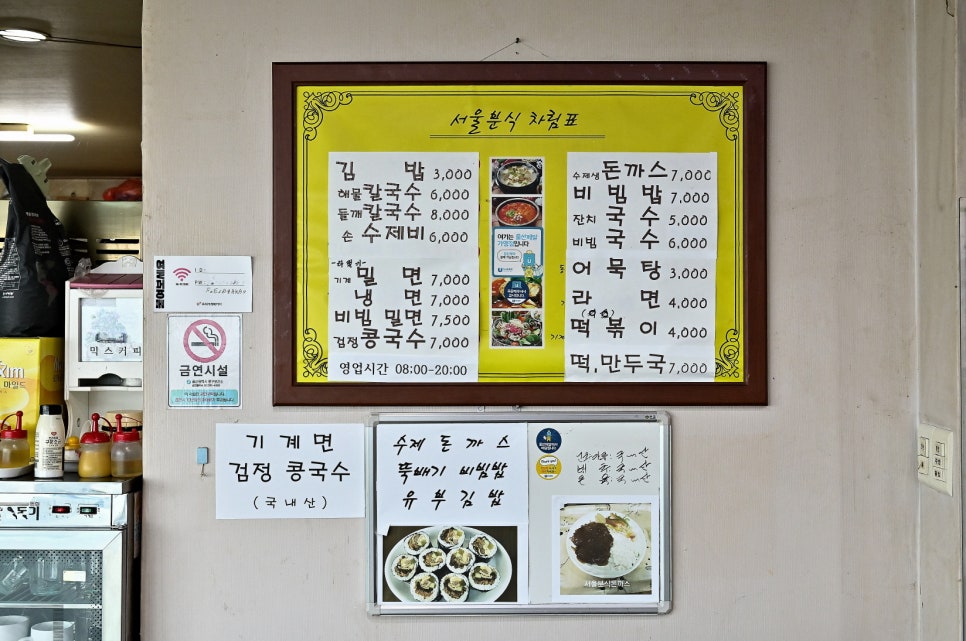 서울분식 차림표
김 밥 3,000
해물칼국수 6,000
들깨칼국수 8,000
손 수제비 6,000
기계 밀 면 7,000
냉 면 7,000
비빔 밀면 7,500
검정 콩국수 7,000
영업시간 08:00-20:00
여기는 울산페달
가맹점입니다
수제생 돈까스 7,000
비 빔 밥 7,000
잔치 국수 5,000
비빔 국수 6,000
어 묵 탕 3,000
라 면 4,000
떡 볶 이 4,000
떡,만두국 7,000
믹스커피
금연시설
기계면
검정 콩국수
(국내산)
수제 돈까스
뚝배기 비빔밥
유부김밥
서울분식돈까스